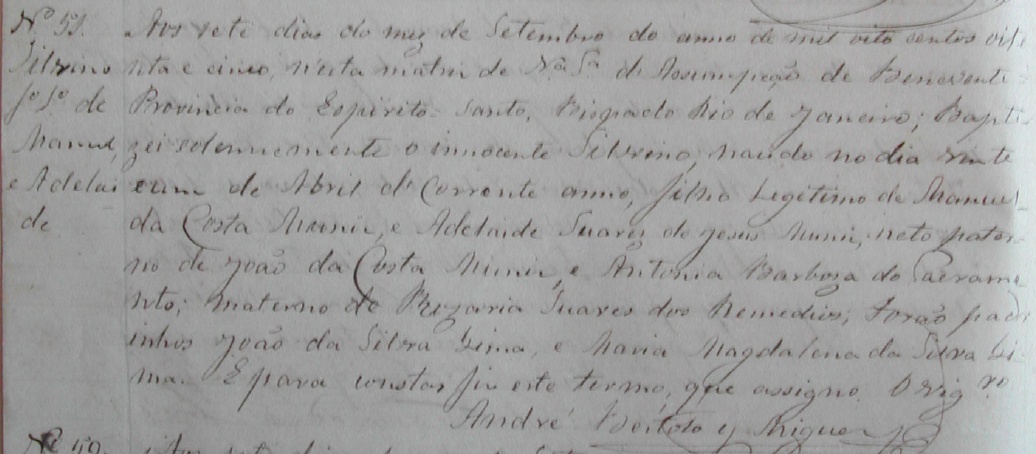 Nº 51. Aos sete dias do mez de Setembro do anno de mil oito centos oite
Silvino nta e cinco, n'esta matriz de Nª Sª da Assumpção de Benevente
fº Lº de Provincia do Espirito Santo, Bispado Rio de Janeiro; Bapti
Manuel, zei solennemente o innocente Silvino, nacido no dia vinte
e Adelai e um de Abril do Corrente anno, filho Legitimo de Manuel
de da Costa Muniz, e Adelaide Suares de Jesus Muniz, neto pater
no de João da Costa Muniz, e Antonia Barboza do Sacrame
nto; materno de Rozaria Suares dos Remedios; Forão padr
inhos João da Silva Lima, e Maria Magdalena da Silva Li
ma. E para constar fiz este termo, que assigno. O vigrº
André
Nº 52.